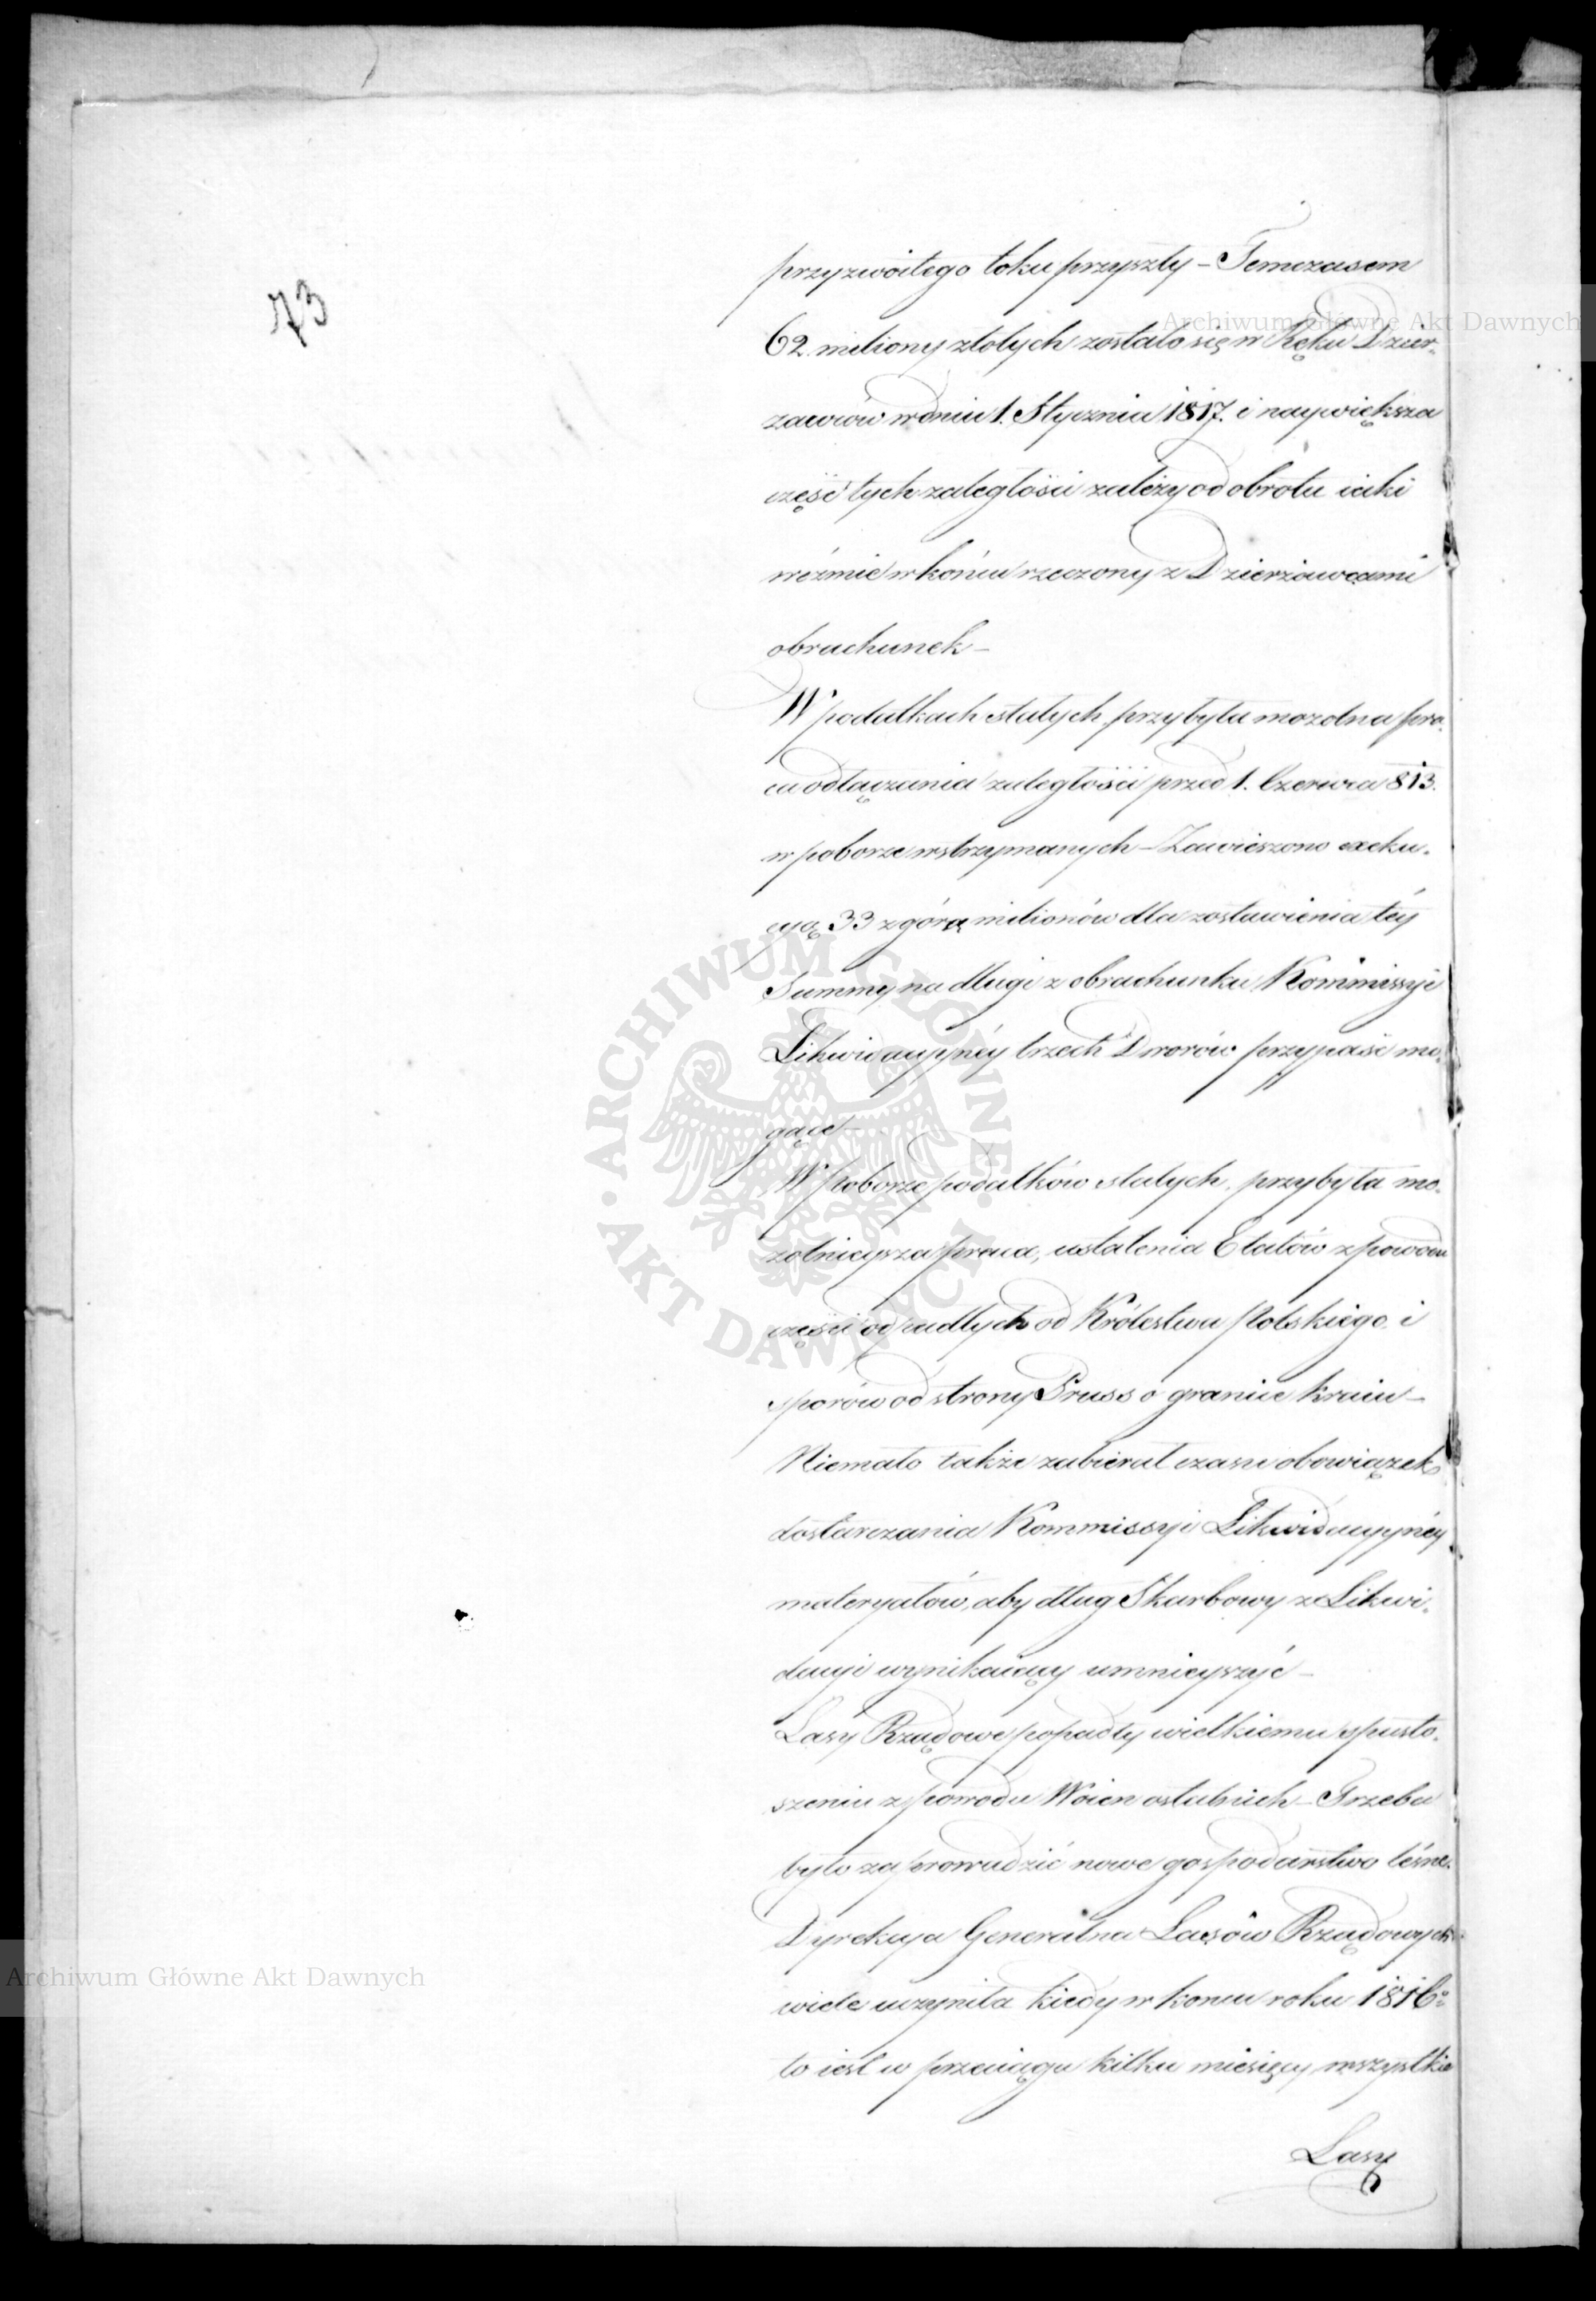 73
przyzwoitego toku przyszły – Temczasem
62. miliony złotych zostało się w Ręku Dzier-
zawców w dniu 1. Stycznia 1817. i naywiększa
część tych zaległości zależy od obrotu iaki
weźmie w końcu rzeczony z Dzierżawcami
obrachunek –
W podatkach stałych, przybyła mozolna pra-
ca odłączania zaległości przed 1. Czerwca 813.
w poborze wstrzymanych – Zawieszono exeku-
cyą 33 z górą milionów dla zostawienia téy
Summy na długi z obrachunku Kommissyi
Likwidacyjnéy trzech Dworów przypaść mo-
gące –
W poborze podatków stałych, przybyła mo-
zolnieysza praca, ustalenia Etatów z powodu
części odpadłych od Królestwa Polskiego i
sporów od strony Pruss o granice kraiu –
Niemało także zabierał czasu obowiązek
dostarczania Kommissyi Likwidacyjnéy
materyałów, aby dług Skarbowy z Likwi-
dacyi wynikaiący umnieyszyć –
Lasy Rządowe popadły wielkiemu spusto-
szeniu z powodu Woien ostatnich – Trzeba
było zaprowadzić nowe gospodarstwo leśne.
Dyrekcya Generalna Lasów Rządowych
wiele uczyniła kiedy w koncu roku 1816o
to iest w przeciągu kilku miesięcy wszystkie
Lasy
Archiwum Główne Akt Dawnych
Archiwum Główne Akt Dawnych
ARCHIWUM GŁÓWNE AKT DAWNYCH